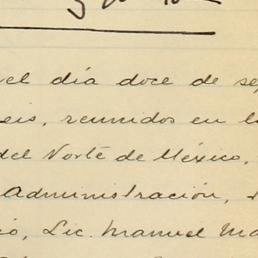 el día doce de se
eis, reunidos en l
del Norte de México,
administración,
io, Lic. Manuel Ma